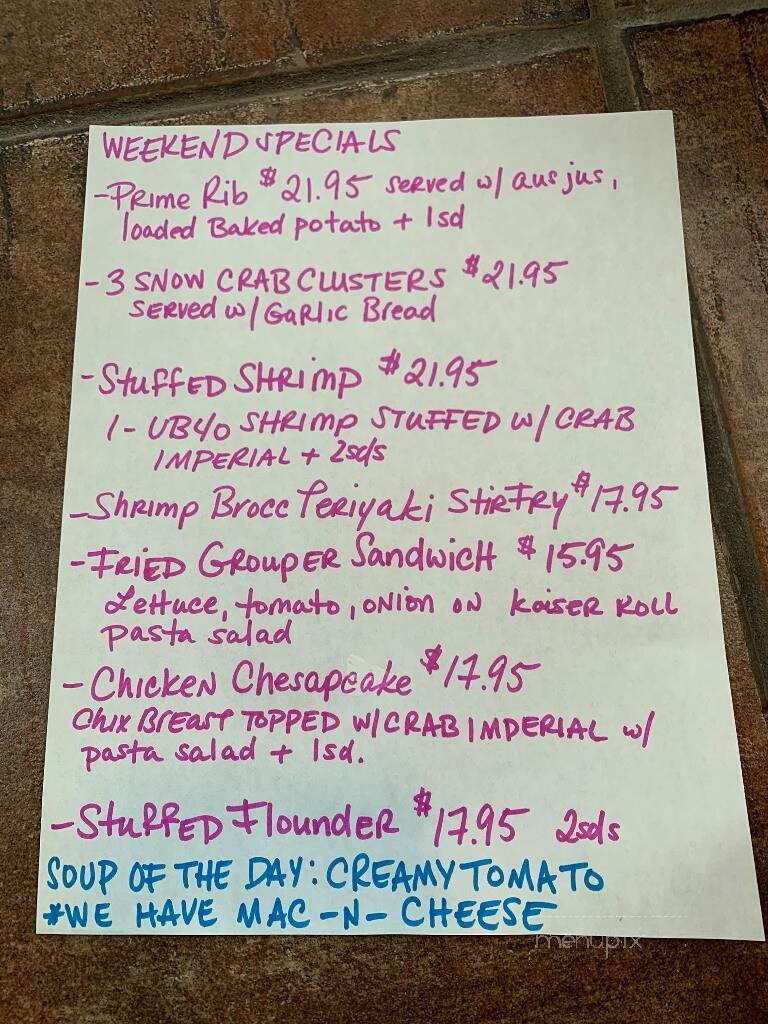 WEEKEND SPECIALS
- Prime Rib $21.95 served w/ aus jus,
loaded Baked potato + 1sd
- 3 SNOW CRAB CLUSTERS $21.95
SERVED w/ GARLIC Bread
- STUFFED SHRIMP $21.95
1- UB40 SHRIMP STUFFED w/ CRAB
IMPERIAL + 2sds
- Shrimp Brocc Teriyaki StirFry $17.95
- FRIED GROUPER Sandwich $15.95
Lettuce, tomato, ONION ON KAISER ROLL
pasta salad
- CHICKEN Chesapeake $17.95
CHIX BREAST TOPPED W/ CRAB IMPERIAL w/
pasta salad + 1sd.
- STUFFED Flounder $17.95 2sds
SOUP OF THE DAY: CREAMY TOMATO
*WE HAVE MAC -N- CHEESE
menupix